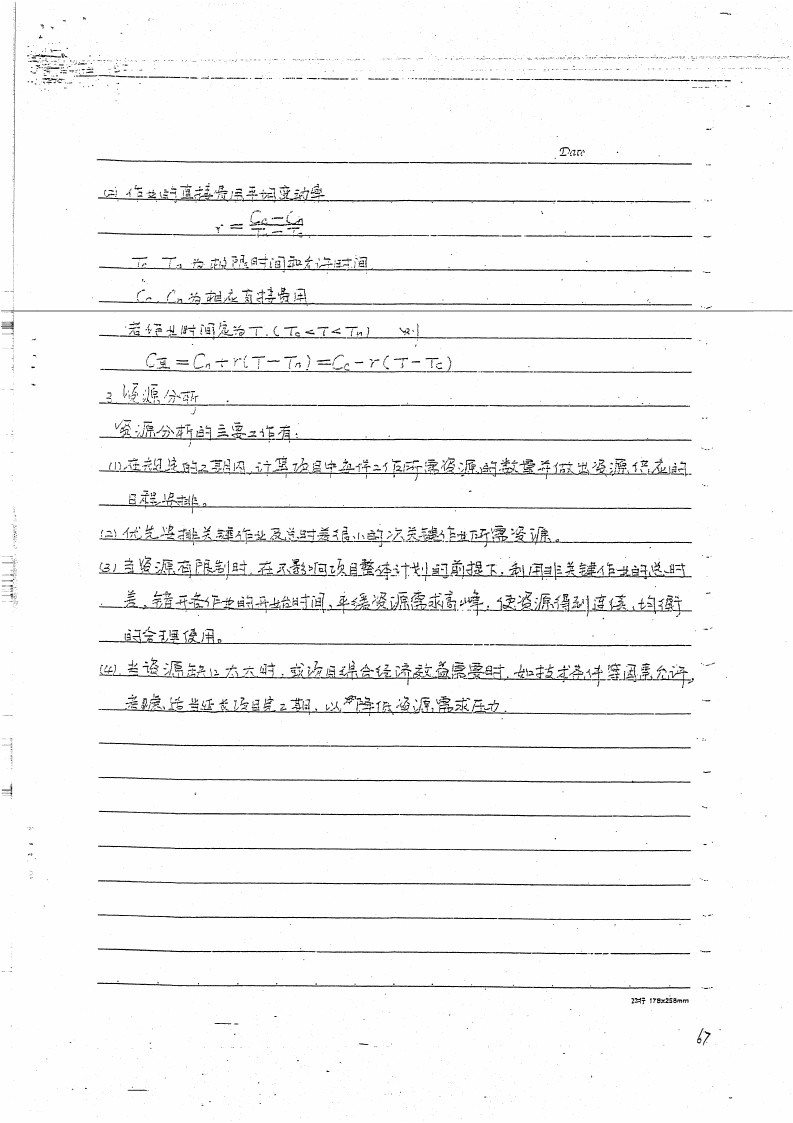 Date
(2) 作业的直接费用平均变动率
r = (Cc - Cn) / (Tn - Tc)
Tc Tn 为极限时间和允许时间
Cc, Cn 为相应直接费用
若作业时间定为T, (Tc < T < Tn) 则
C直 = Cn + r(T - Tn) = Cc - r(T - Tc)
3. 资源分析
资源分析的主要工作有:
(1) 在规定的工期内, 计算项目中各件工作所需资源的数量并做出资源供应的
日程安排。
(2) 优先安排关键作业及总时差很小的次关键作业所需资源。
(3) 当资源有限制时, 在不影响项目整体计划的前提下, 利用非关键作业的总时
差, 错开各作业的开始时间, 平缓资源需求高峰, 使资源得到连续, 均衡
的合理使用。
(4) 当资源缺口太大时, 或项目综合经济效益需要时, 如技术条件等因素允许,
考虑适当延长项目完工期, 以降低资源需求压力.
23行 178x258mm
67